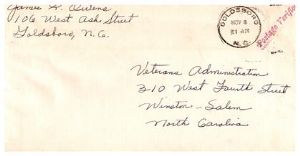 James R. Owens
106 West Ash Street
Goldsboro, N.C.
GOLDSBORO
NOV 8
N.C.
Postage
Veterans Administration
310 West Fourth Street
Winston-Salem
North Carolina